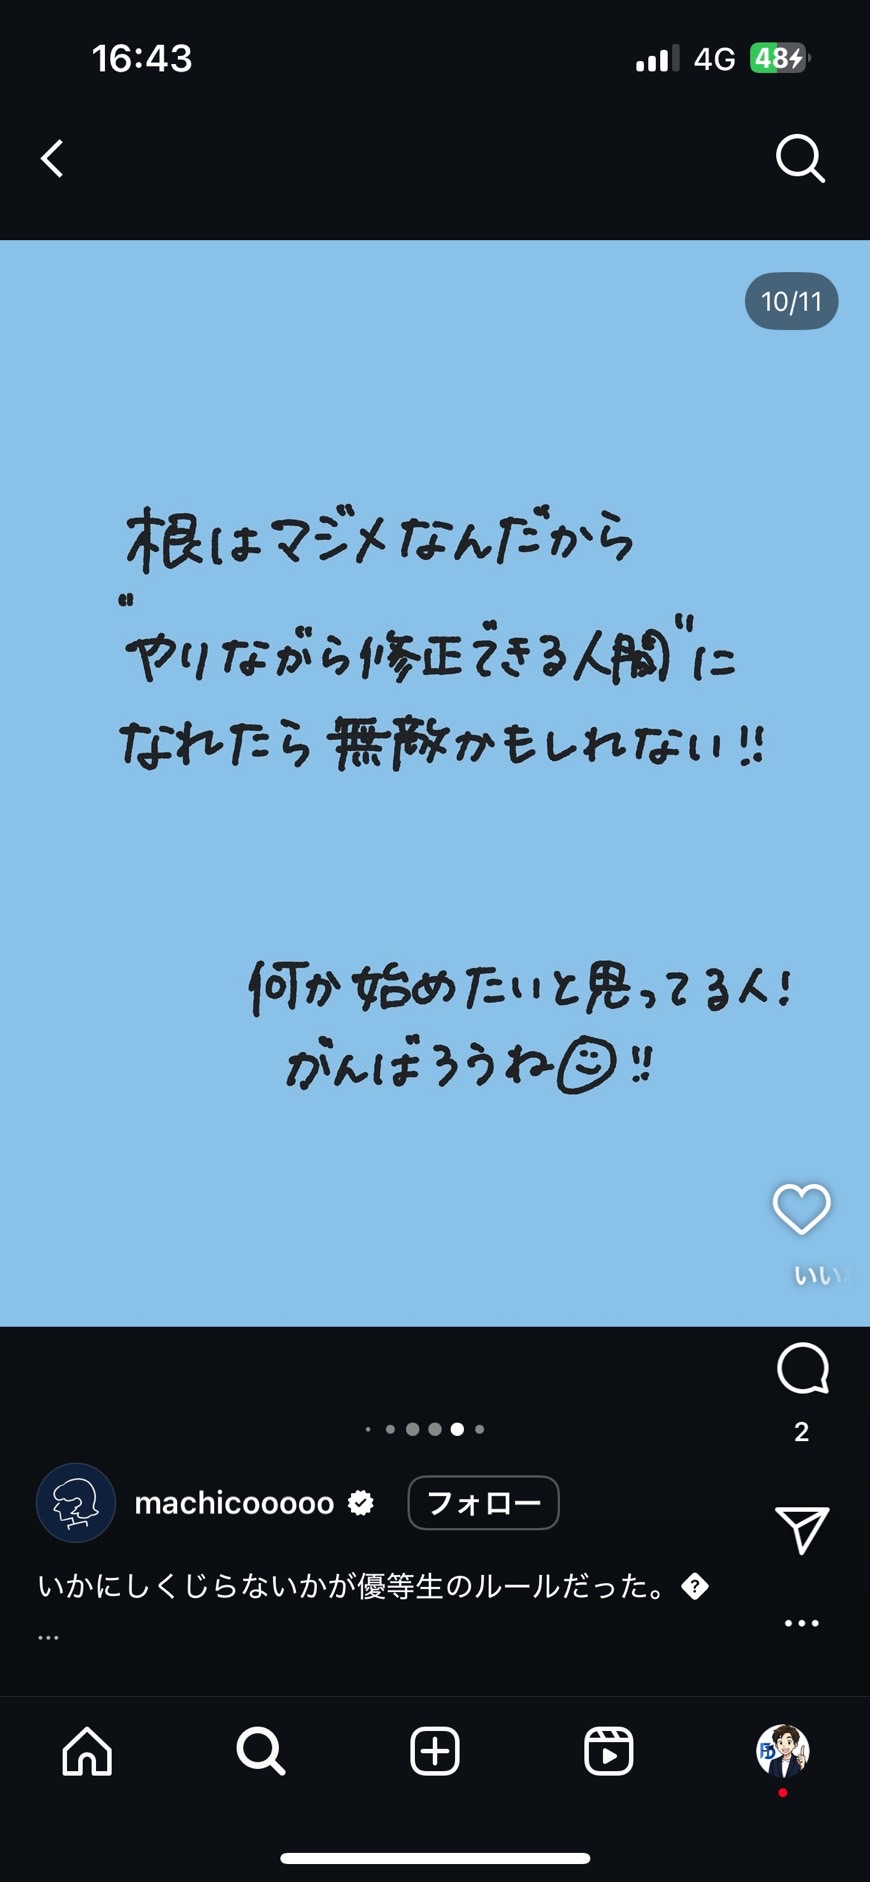 16:43
4G
48
10/11
根はマジメなんだから
“やりながら修正できる人間”に
なれたら無敵かもしれない!!
何か始めたいと思ってる人!
がんばろうね!!
いい
2
machicooooo
フォロー
いかにしくじらないかが優等生のルールだった。
…